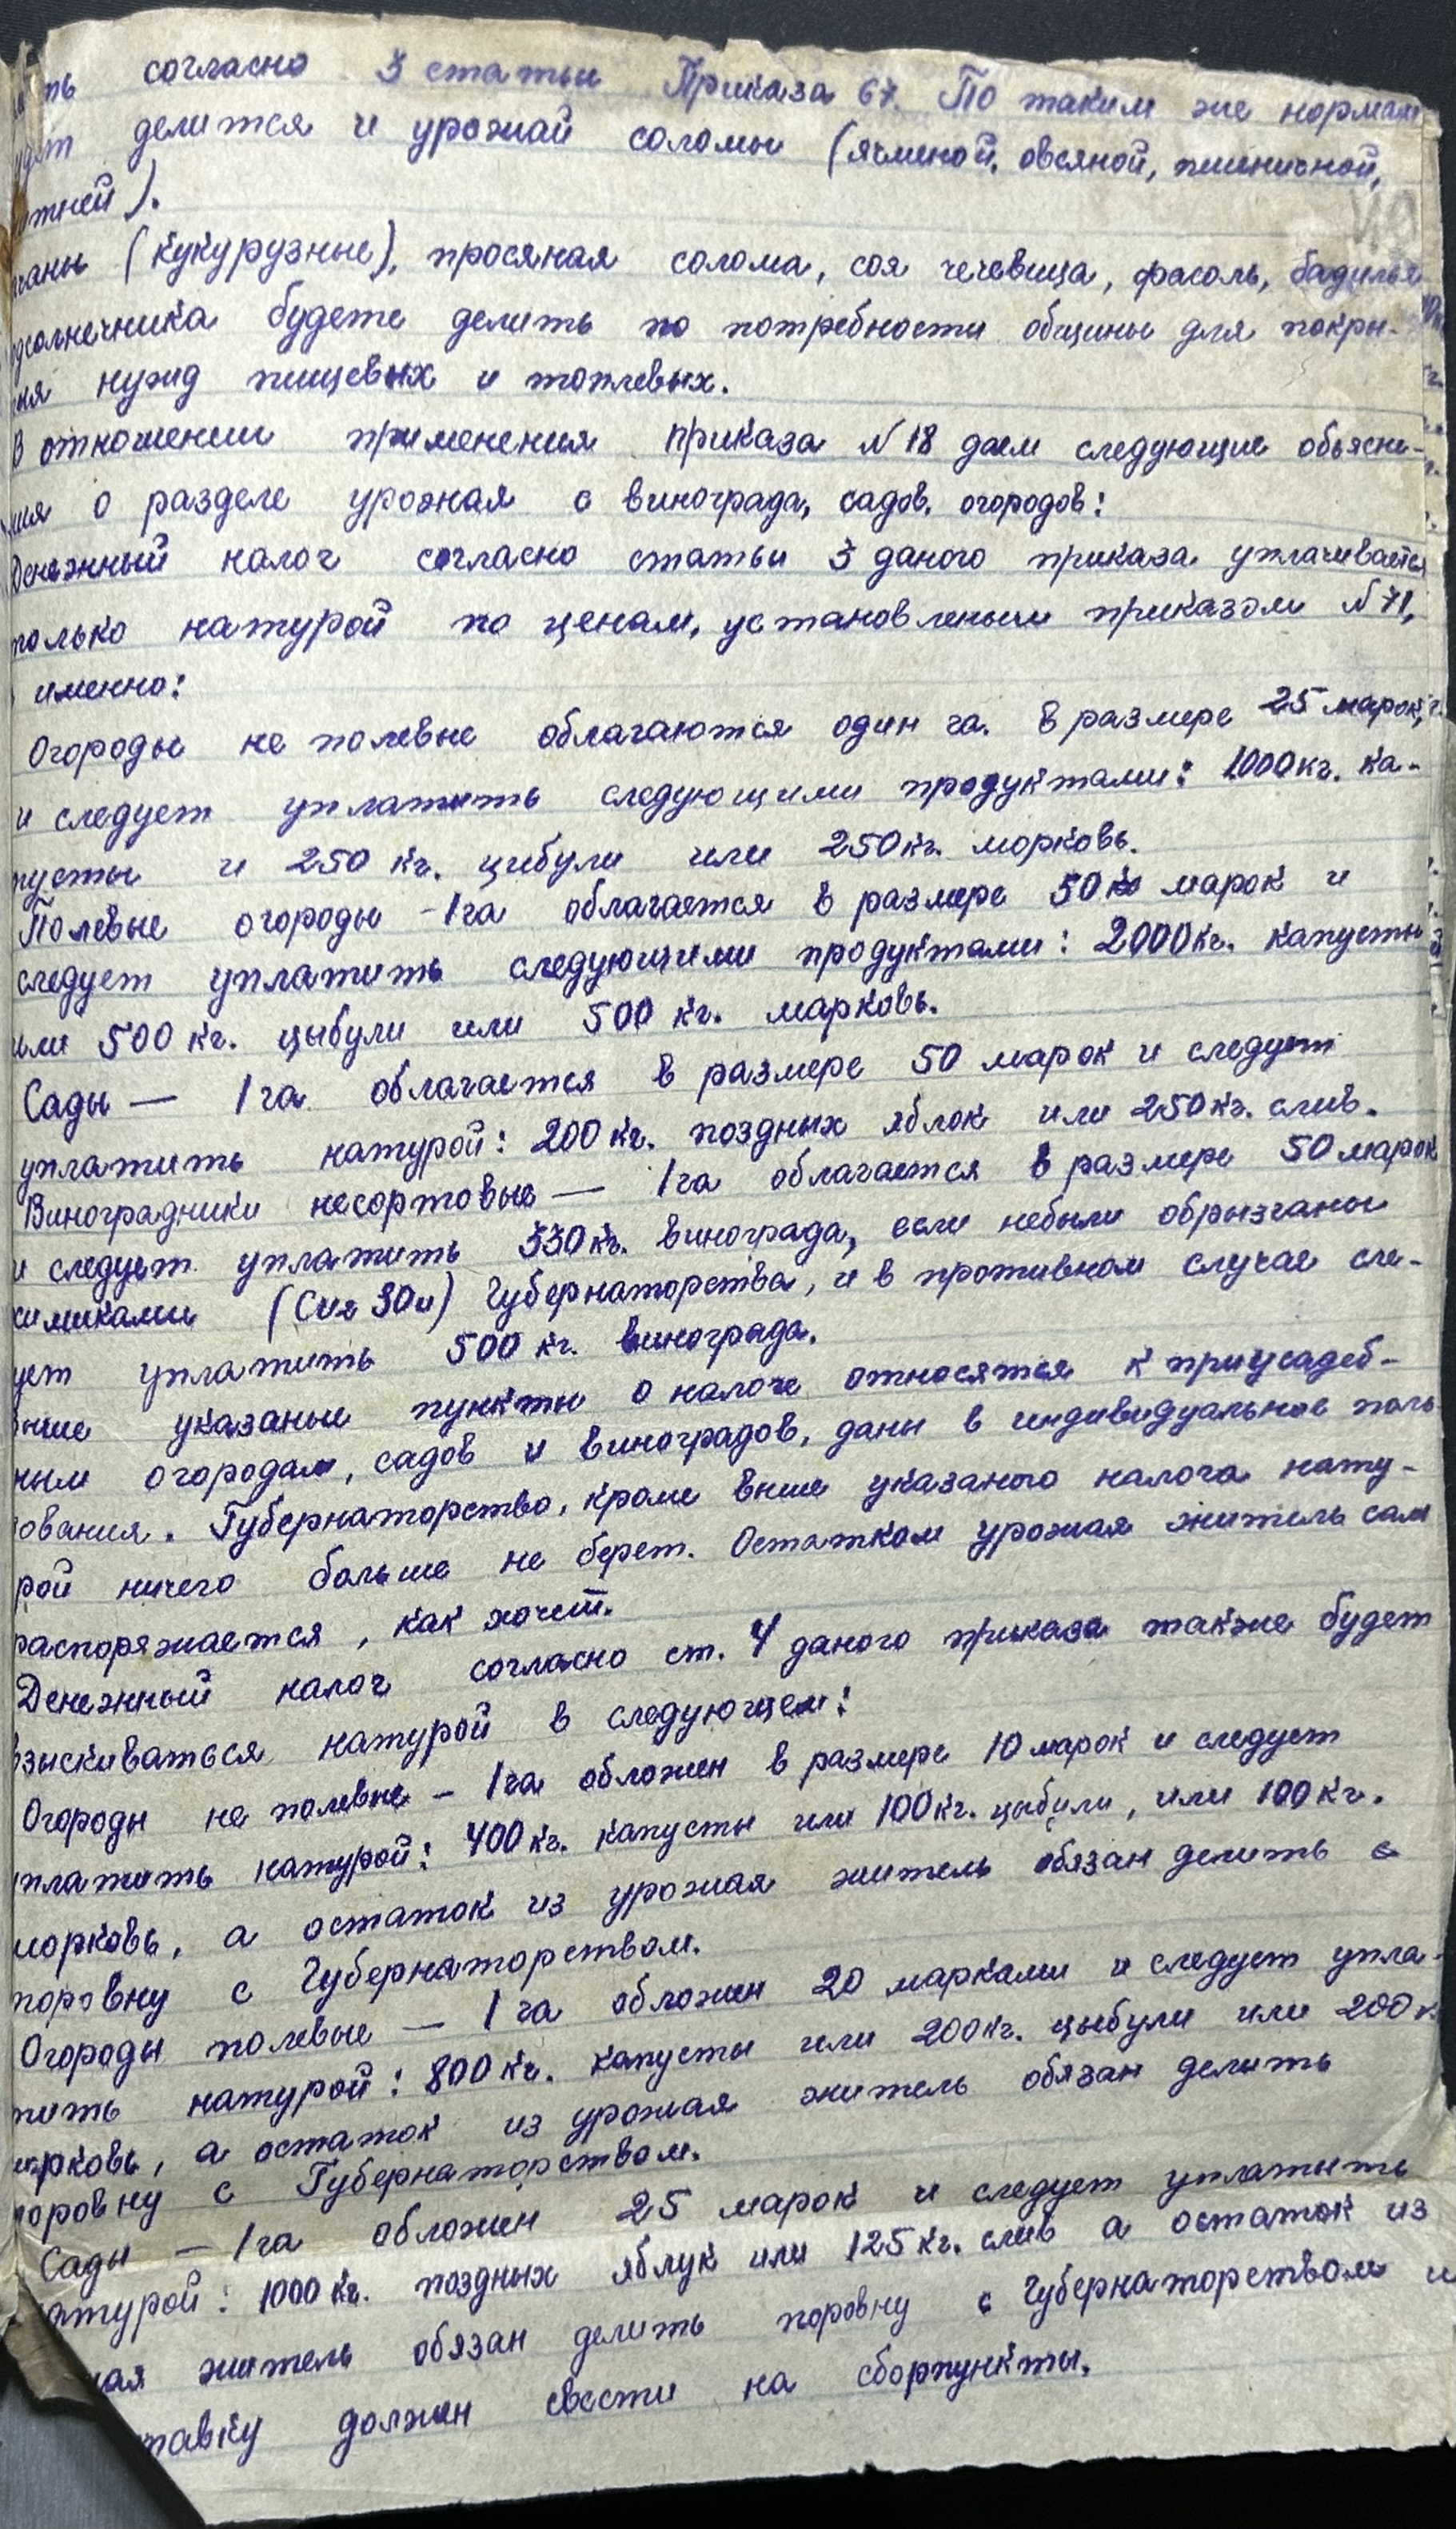 ть согласно 3 статьи Приказа 67. По таким же нормам
удет делится и урожай соломы (ячменой, овсяной, пшеничной,
жней).
чаны (кукурузные), просяная солома, соя чечевица, фасоль, бадилья
одсолнечника будете делить по потребности общины для покры-
ия нужд пищевых и топлевых.
В отношении применения приказа N 18 даем следующие обьясне-
ия о разделе урожая с винограда, садов, огородов:
Денежный налог согласно статьи 3 даного приказа уплачивается
только натурой по ценам, установленым приказом N 71,
именно:
Огороды не полевые облагаются один га. в размере 25 марок,
и следует уплатить следующими продуктами: 1000 кг. ка-
пусты и 250 кг. цибули или 250 кг. морковь.
Полевые огороды - 1 га облагается в размере 50 марок и
следует уплатить следующими продуктами: 2000 кг. капусты
или 500 кг. цыбули или 500 кг. марковь.
Сады — 1 га облагается в размере 50 марок и следует
уплатить натурой: 200 кг. поздных яблок или 250 кг. слив.
Виноградники несортовые — 1 га облагается в размере 50 марок
и следует уплатить 330 кг. винограда, если небыли обрызганы
химиками Губернаторства, и в противном случае сле-
ует уплатить 500 кг. винограда.
выше указаные пункты о налоге относятся к приусадеб-
ным огородам, садов и виноградов, даны в индивидуальное поль-
зования. Губернаторство, кроме выше указаного налога нату-
рой ничего больше не берет. Остатком урожая житель сам
распоряжается, как хочет.
Денежный налог согласно ст. 4 даного приказа также будет
взыскиваться натурой в следующем:
Огороды не полевые - 1 га обложен в размере 10 марок и следует
уплатить натурой: 400 кг. капусты или 100 кг. цыбули, или 100 кг.
морковь, а остаток из урожая житель обязан делить с
поровну с Губернаторством.
Огороды полевые — 1 га обложен 20 марками и следует упла-
тить натурой: 800 кг. капусты или 200 кг. цыбули или 200 к.
морковь, а остаток из урожая житель обязан делить
поровну с Губернаторством.
Сады — 1 га обложен 25 марок и следует уплатыть
натурой: 1000 кг. поздных яблук или 125 кг. слив а остаток из
жая житель обязан делить поровну с Губернаторством и
тавку должен свести на сборпункты.